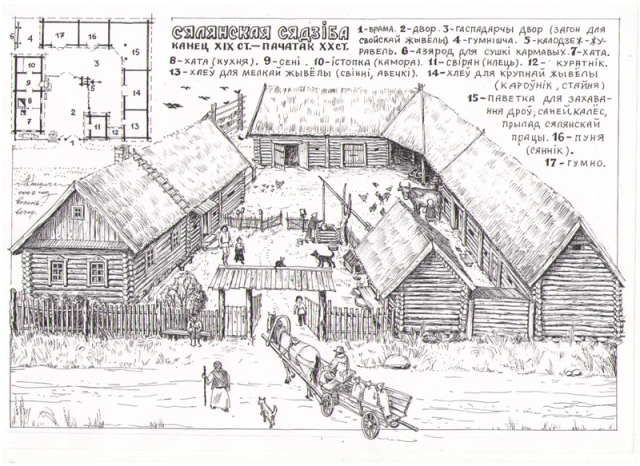 СЯЛЯНСКАЯ СЯДЗІБА
КАНЕЦ XIX СТ.—ПАЧАТАК XX СТ.
1-БРАМА. 2-ДВОР. 3-ГАСПАДАРЧЫ ДВОР (ЗАГОН ДЛЯ
СВОЙСКАЙ ЖЫВЁЛЫ) 4-ГУМНІШЧА. 5-КАЛОДЗЕЖ-ЖУ-
РАВЕЛЬ. 6-АЗЯРОД ДЛЯ СУШКІ КАРМАВЫХ. 7-ХАТА.
8-ХАТА (КУХНЯ). 9-СЕНІ. 10-ІСТОПКА (КАМОРА). 11-СВІРАН (КЛЕЦЬ). 12-КУРАТНІК.
13-ХЛЕЎ ДЛЯ МЕЛКАЙ ЖЫВЁЛЫ (СВІННІ, АВЕЧКІ). 14-ХЛЕЎ ДЛЯ КРУПНАЙ ЖЫВЁЛЫ
(КАРОЎНІК, СТАЙНЯ)
15-ПАВЕТКА ДЛЯ ЗАХАВА-
ННЯ ДРОЎ, САНЕЙ, КАЛЁС,
ПРЫЛАД СЯЛЯНСКАЙ
ПРАЦЫ. 16-ПУНЯ
(СЯННІК).
17-ГУМНО.
6 4 17 16
15
10 3
9 5
8 2 14
7
12
11 13
1
вечор.